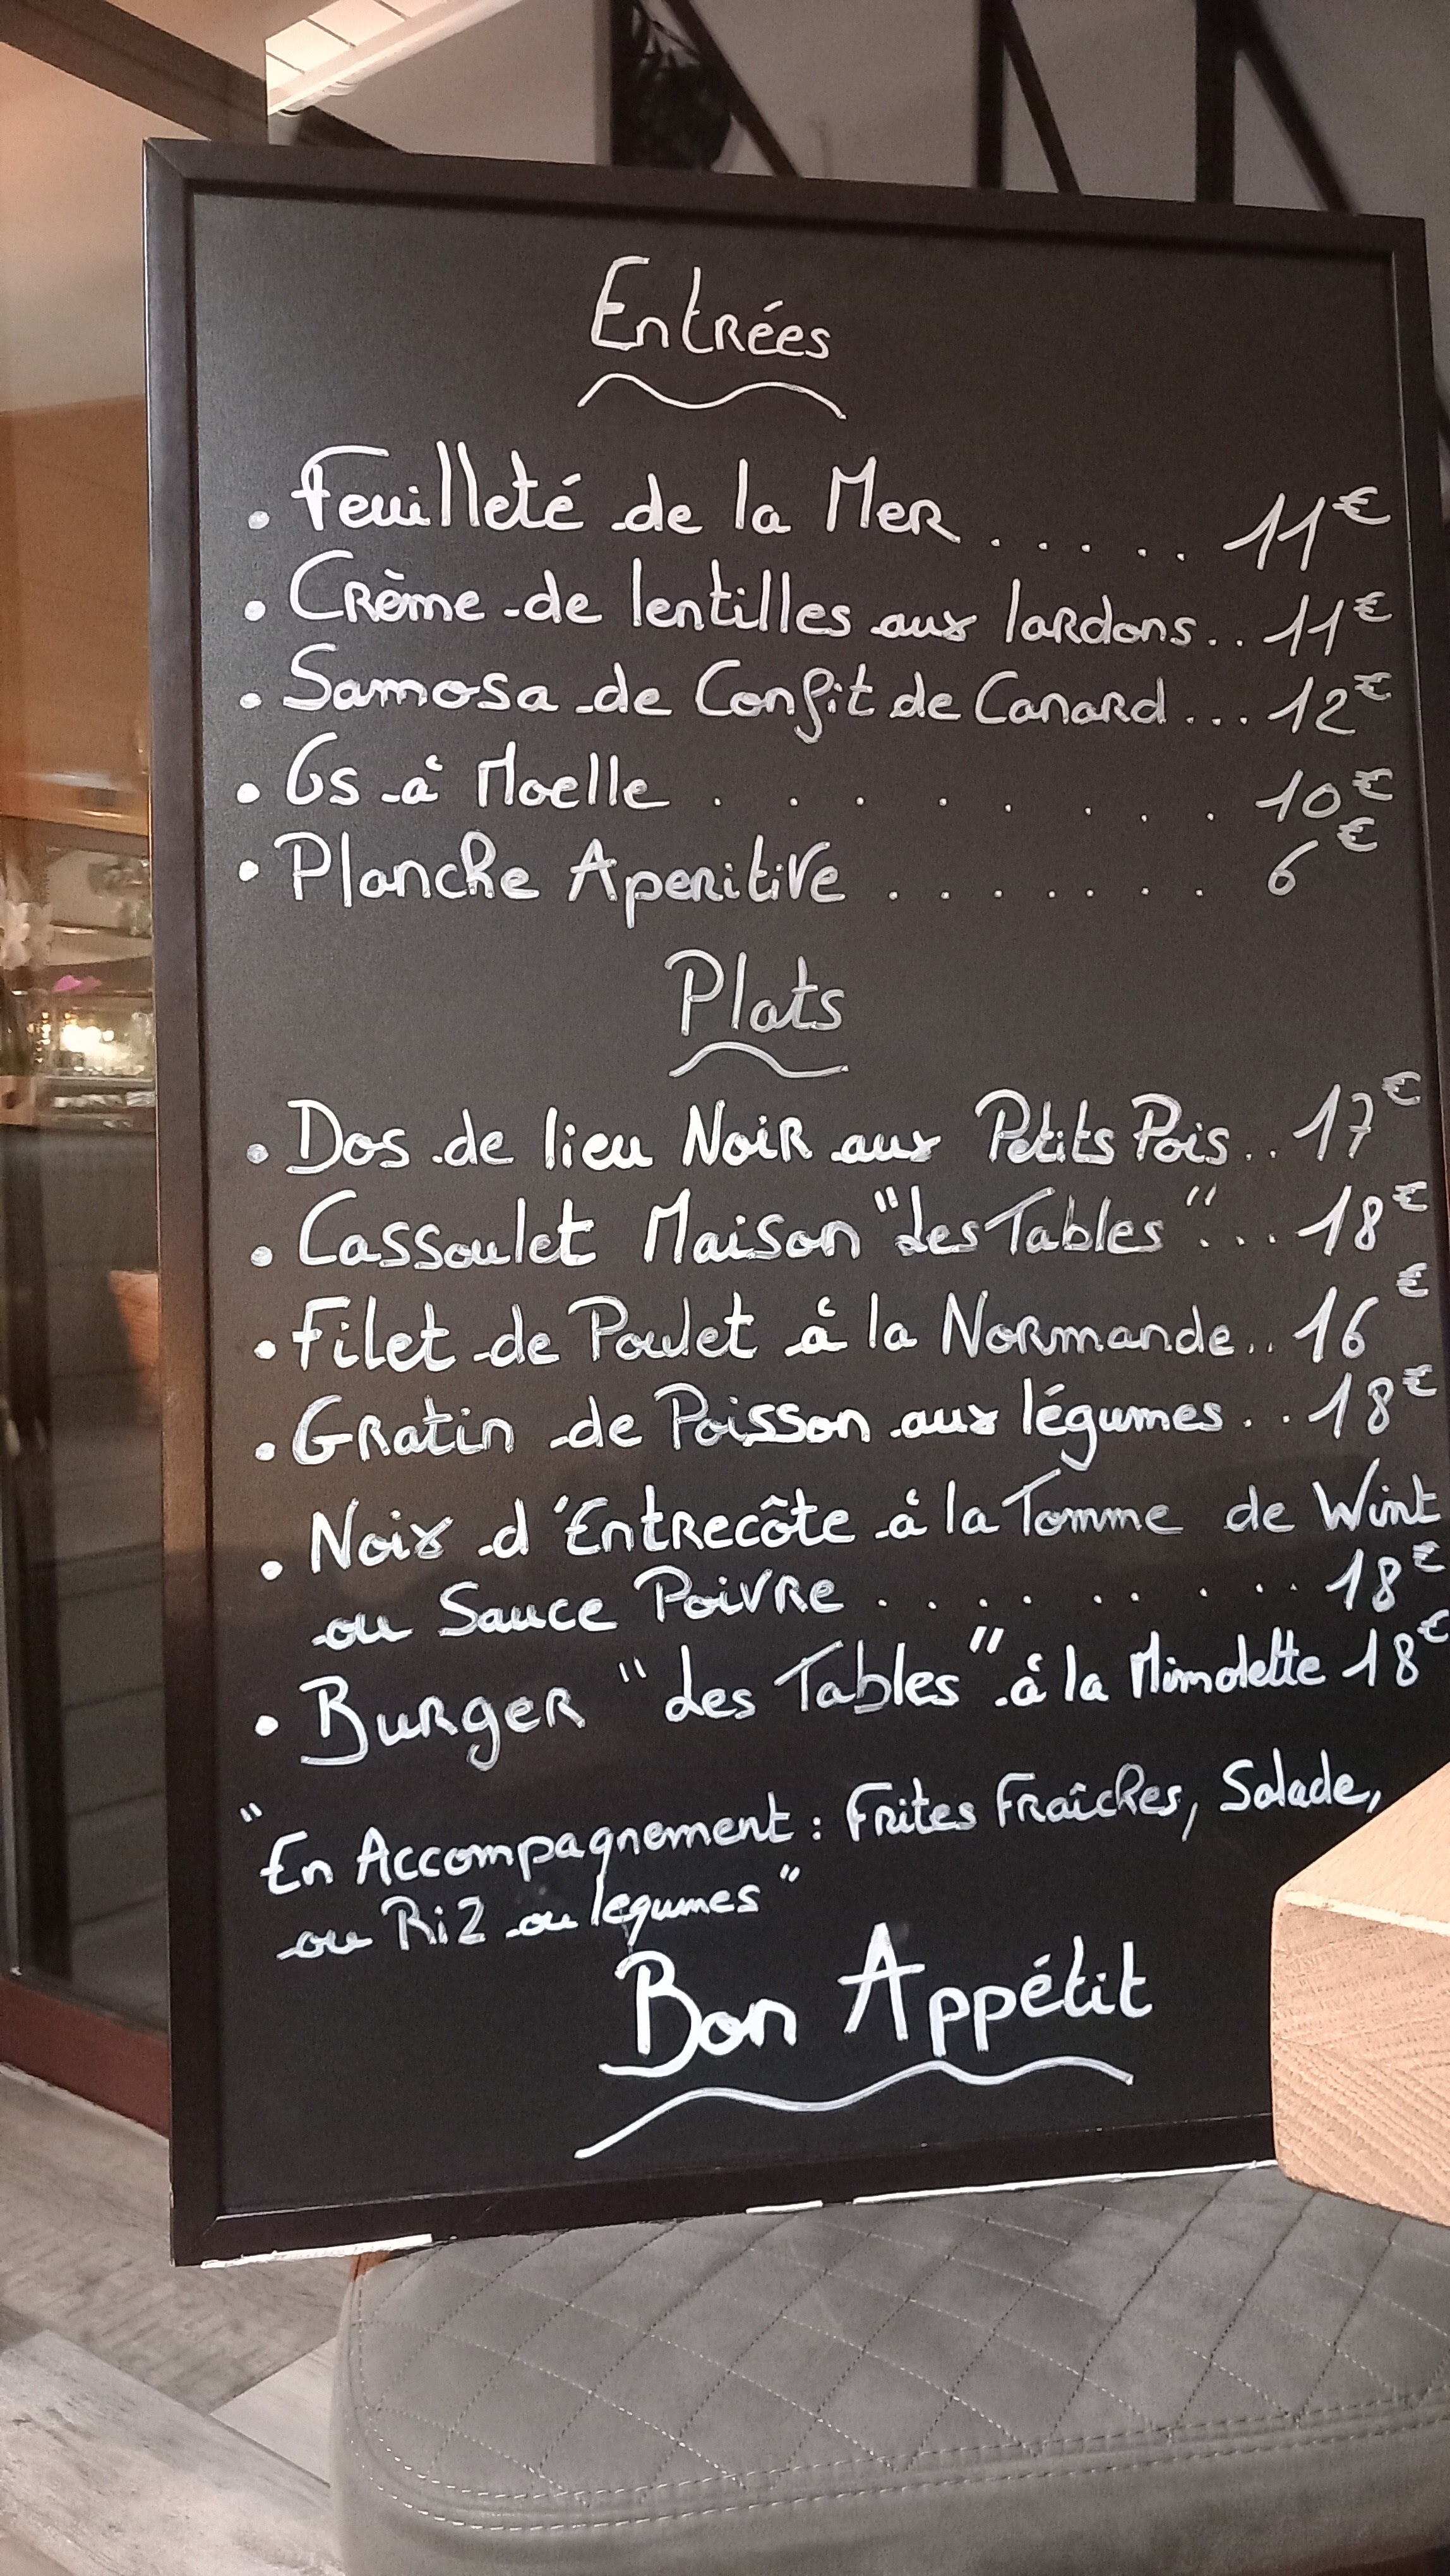 Entrées
. Feuilleté de la Mer ..... 11€
. Crème de lentilles aux lardons.. 11€
. Samosa de Confit de Canard... 12€
. Os à Moelle ....... 10€
. Planche Aperitive ....... 6€
Plats
. Dos de lieu Noir aux Petits Pois.. 17€
. Cassoulet Maison "des Tables"... 18€
. Filet de Poulet à la Normande.. 16€
. Gratin de Poisson aux légumes.. 18€
. Noix d'Entrecôte à la Tomme de Wint
ou Sauce Poivre ........ 18€
. Burger "des Tables" à la Mimolette 18€
"En Accompagnement : Frites Fraîches, Salade,
ou Riz ou legumes"
Bon Appétit